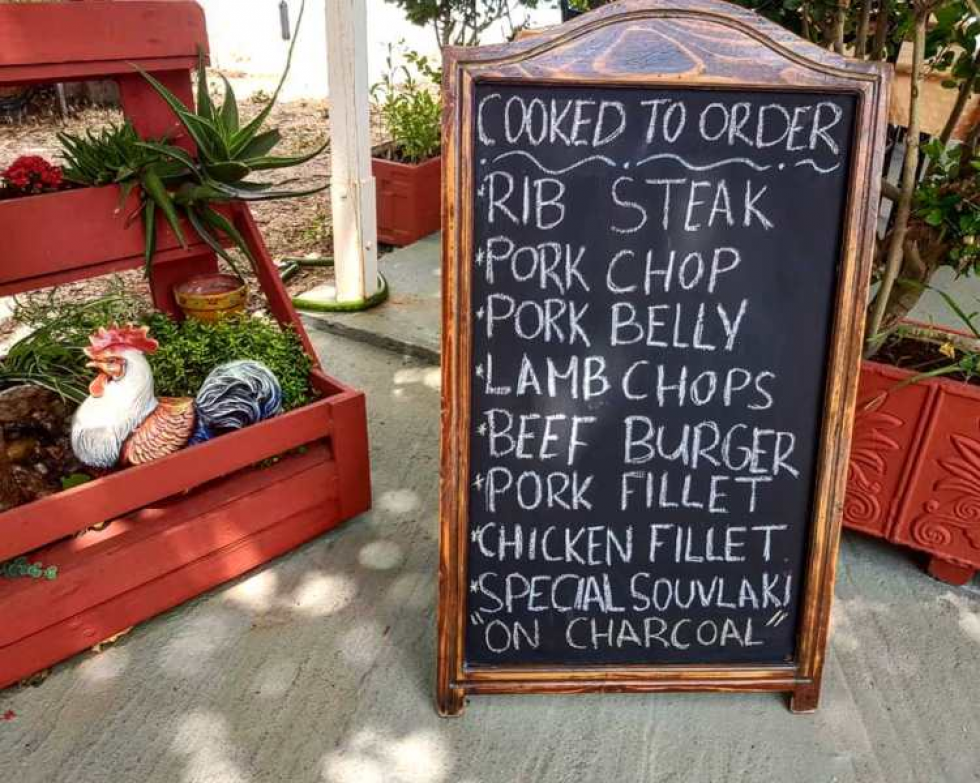 COOKED TO ORDER
*RIB STEAK
*PORK CHOP
*PORK BELLY
*LAMB CHOPS
*BEEF BURGER
*PORK FILLET
*CHICKEN FILLET
*SPECIAL SOUVLAKI
"ON CHARCOAL"